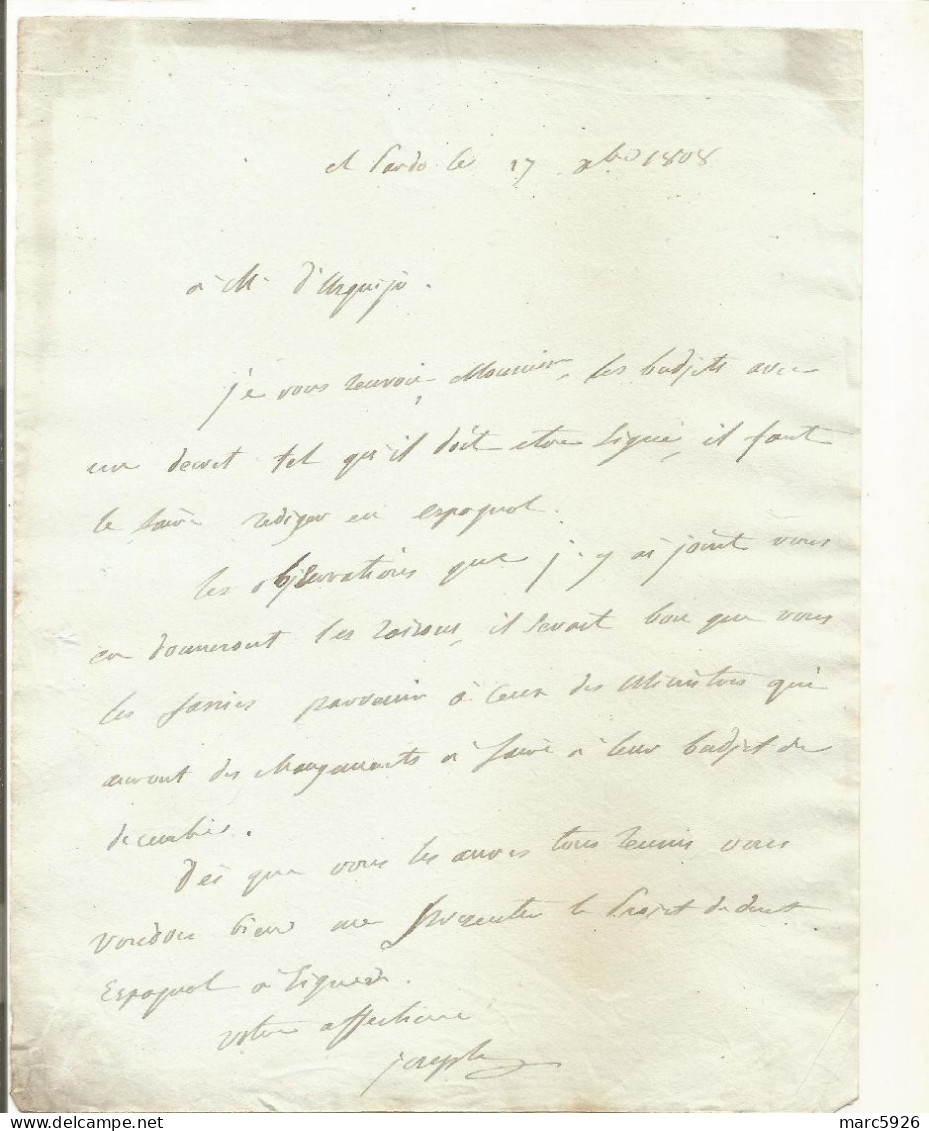 el Pardo le 17 xbre 1808
à Mr d'Urquijo.
je vous renvoie, Monsieur, les budjets avec
un decret tel qu'il doit etre signé, il faut
le faire rediger en espagnol.
les observations que j'y ai joint vous
en donneront les raisons, il serait bon que vous
les fassies parvenir à ceux des Ministres qui
auront des changements à faire à leur budjet de
decembre.
Dès que vous les aures tous reunis, vous
voudres bien me presenter le projet de decret
Espagnol à signer.
votre affectionné
joseph
marc5926